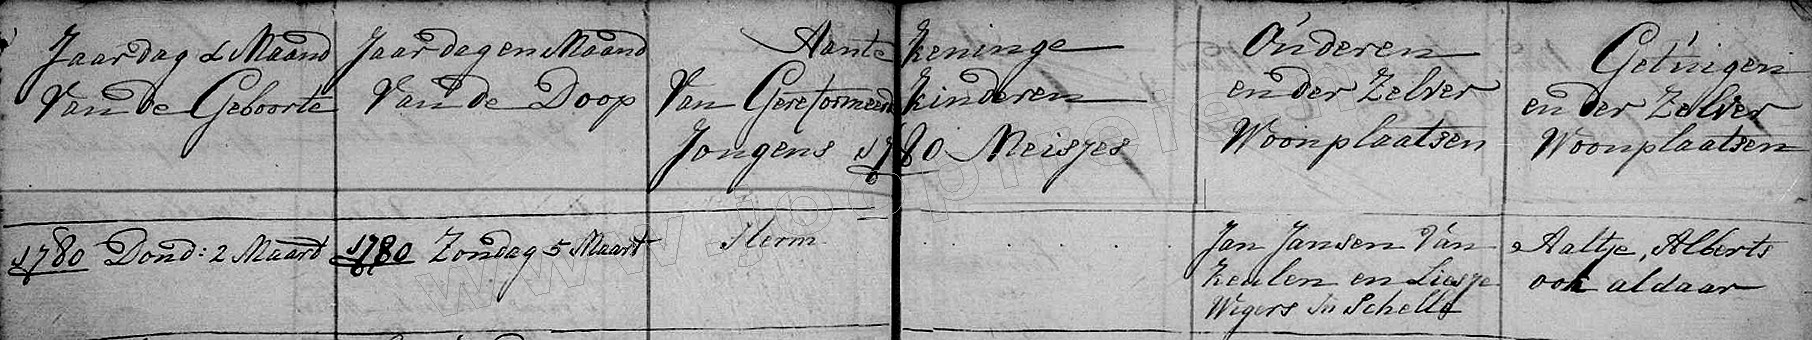 Jaar dag & Maand
Van de Geboorte
Jaar dag en Maand
Van de Doop
Aante keninge
Van Gereformeerd kinderen
Jongens 1780 Meisjes
Ouderen
en der Zelver
Woonplaatsen
Getuigen
en der Zelver
Woonplaatsen
1780 Dond: 2 Maart
1780 Zondag 5 Maart
Herm
Jan Jansen Van
Keulen en Liesje
Wigers In Schelle
Aaltje, Alberts
ook aldaar